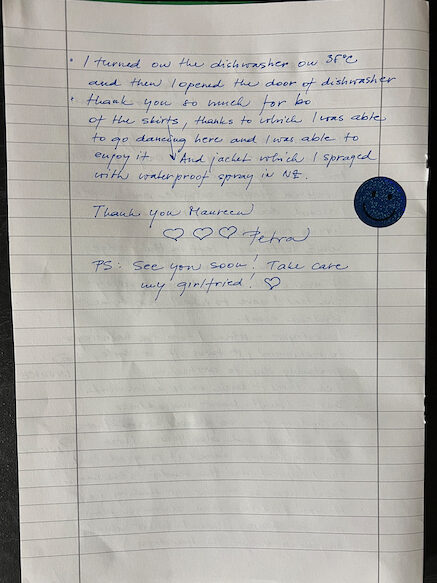 • I turned on the dishwasher on 35°C
and then I opened the door of dishwasher
• thank you so much for bo
of the skirts, thanks to which I was able
to go dancing here and I was able to
enjoy it. And jacket which I sprayed
with waterproof spray in NZ.
Thank you Maureen
♡ ♡ ♡ Petra
PS: See you soon! Take care
my girlfried! ♡